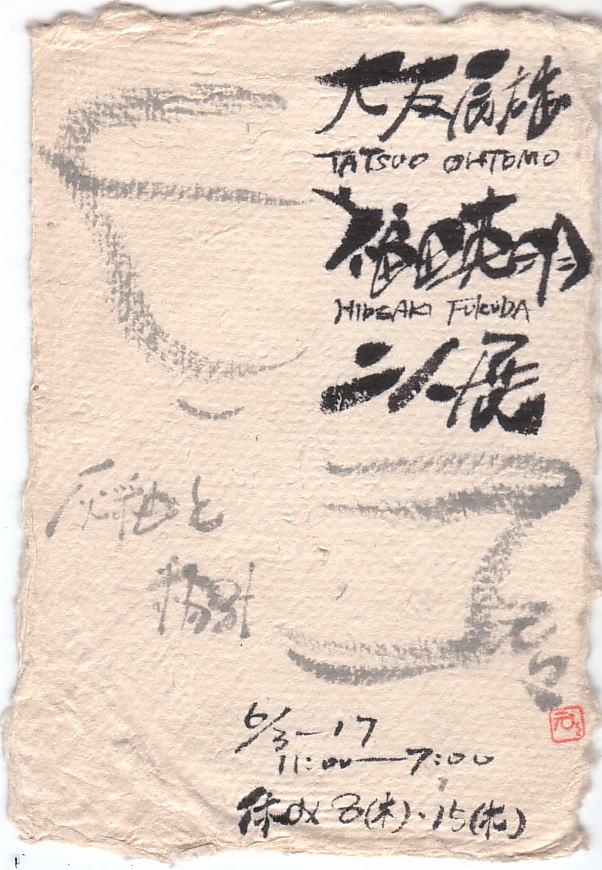 大友辰雄
TATSUO OHTOMO
福田英明
HIDEAKI FUKUDA
二人展
灰釉と
6/3–17
11:00—7:00
休み 8(木)・15(木)